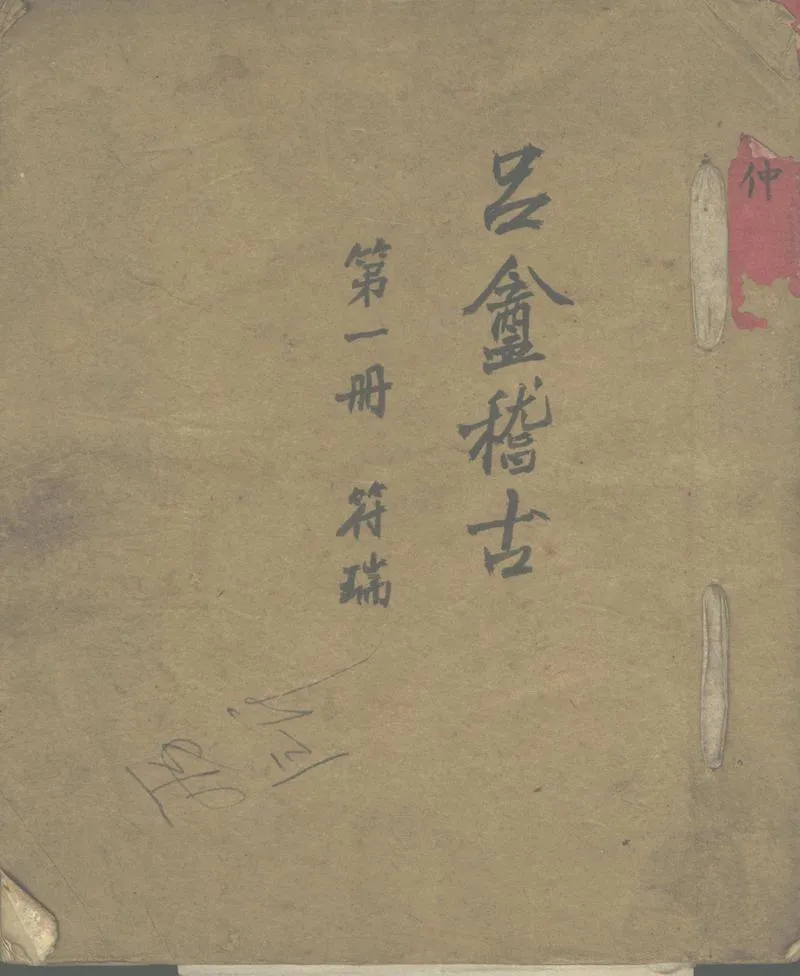 仲
吕盦稽古
第一册 符瑞